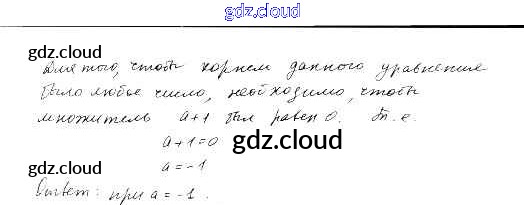 gdz.cloud
gdz.cloud
Для того, чтобы корнем данного уравнения
было любое число, необходимо, чтобы
множитель a+1 был равен 0. Т.е.
a+1=0
gdz.cloud
a=-1
gdz.cloud
Ответ: при a=-1.